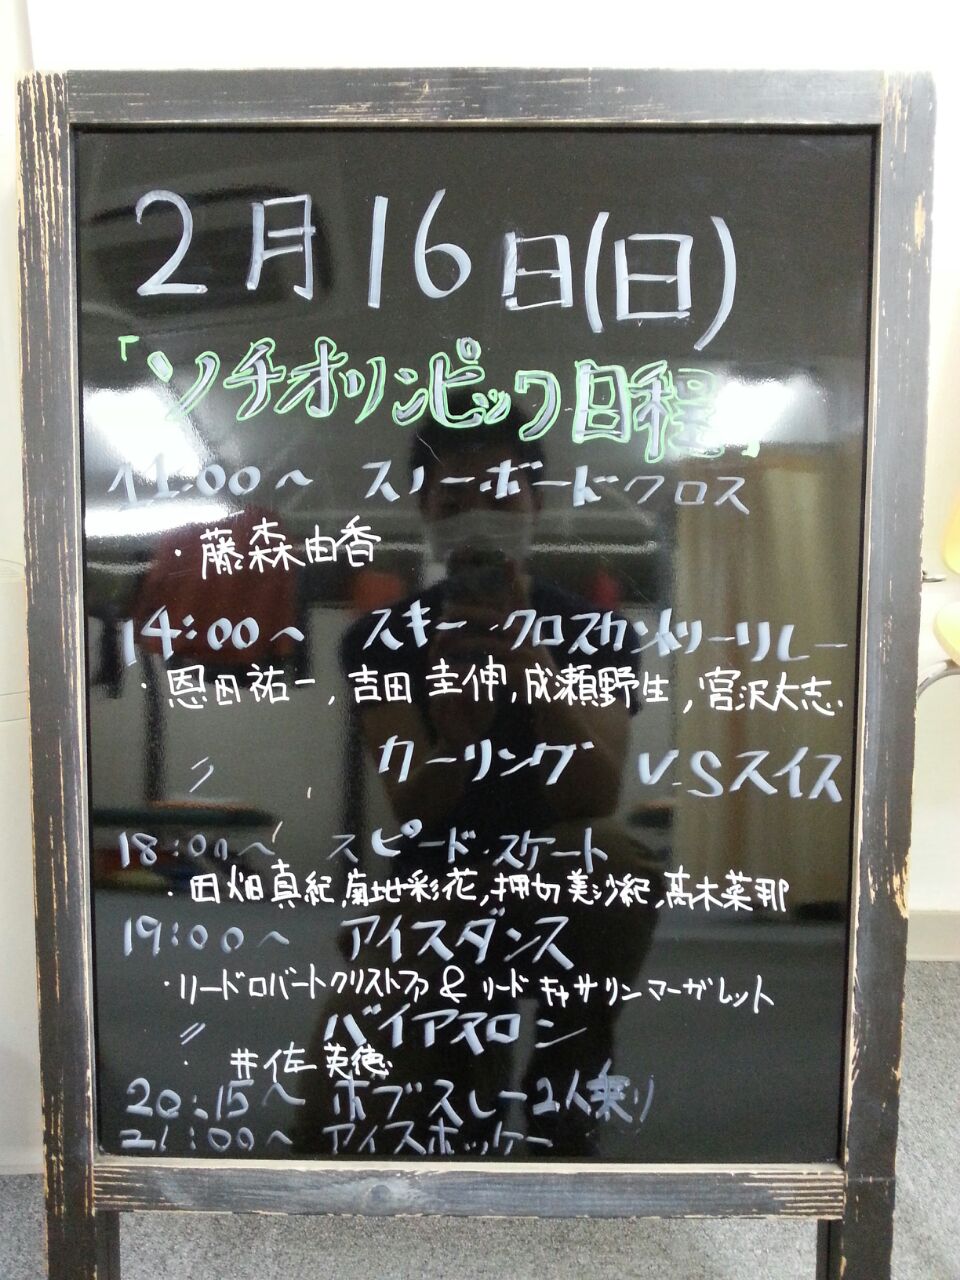 2月16日(日)
「ソチオリンピック日程」
11:00〜 スノーボードクロス
・藤森由香
14:00〜 スキー・クロスカントリーリレー
・恩田祐一,吉田圭伸,成瀬野生,宮沢大志
〃 カーリング VSスイス
18:00〜 スピード・スケート
・田畑真紀,菊地彩花,押切美沙紀,高木菜那
19:00〜 アイスダンス
・リードロバートクリストファ&リードキャサリンマーガレット
〃 バイアスロン
・井佐英徳
20:15〜 ボブスレー2人乗り
21:00〜 アイスホッケー